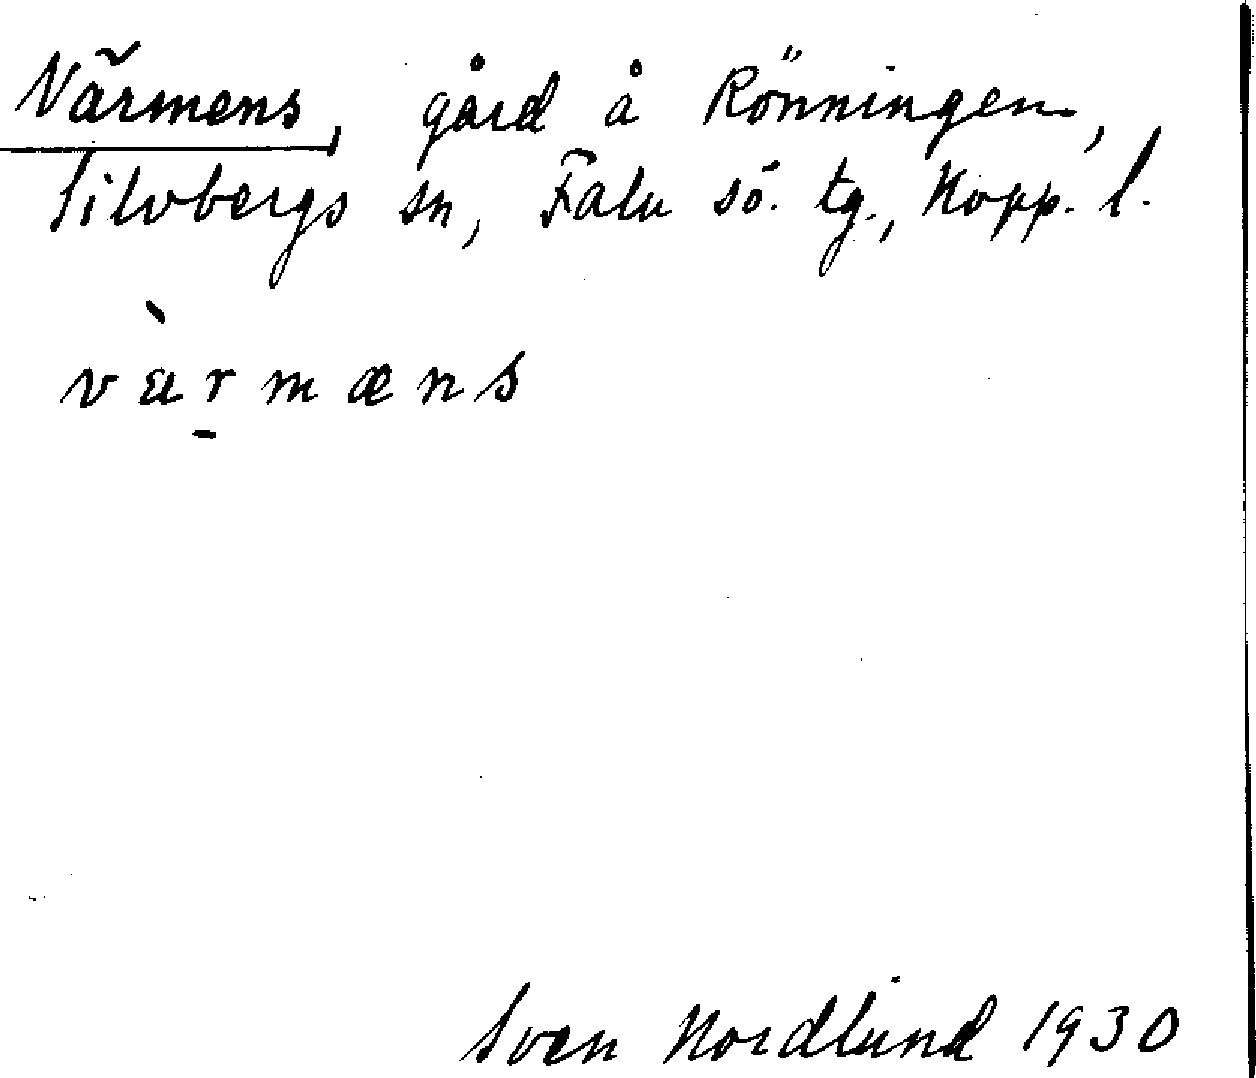 Värmens, gård å Rönningen,
Silvbergs sn, Falu sö. tg., Kopp. l.
värmæns
Sven Nordlund 1930